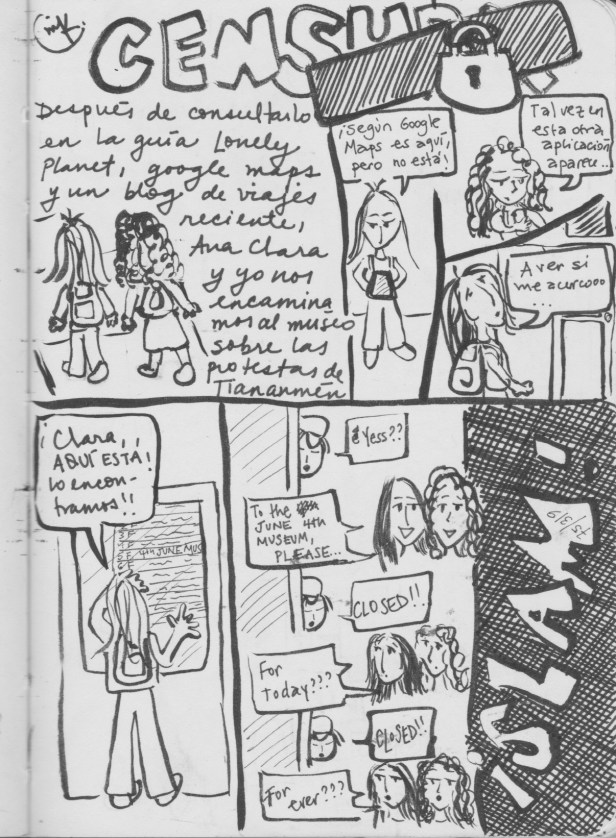 CENSURA
Después de consultarlo
en la guía Lonely
Planet, google maps
y un blog de viajes
reciente,
Ana Clara
y yo nos
encamina
mos al museo
sobre las
protestas de
Tiananmén
¡Según Google
Maps es aquí,
pero no está!
Tal vez en
esta otra
aplicación
aparece...
A ver si
me acercooo
...
¡Clara,
AQUÍ ESTÁ!
Lo encon-
tramos!!
5F 4TH JUNE MUS
6F
¿Yess??
To the
JUNE 4th
MUSEUM,
PLEASE...
CLOSED!!
For
Today???
CLOSED!!
For
ever???
¡SLAM!